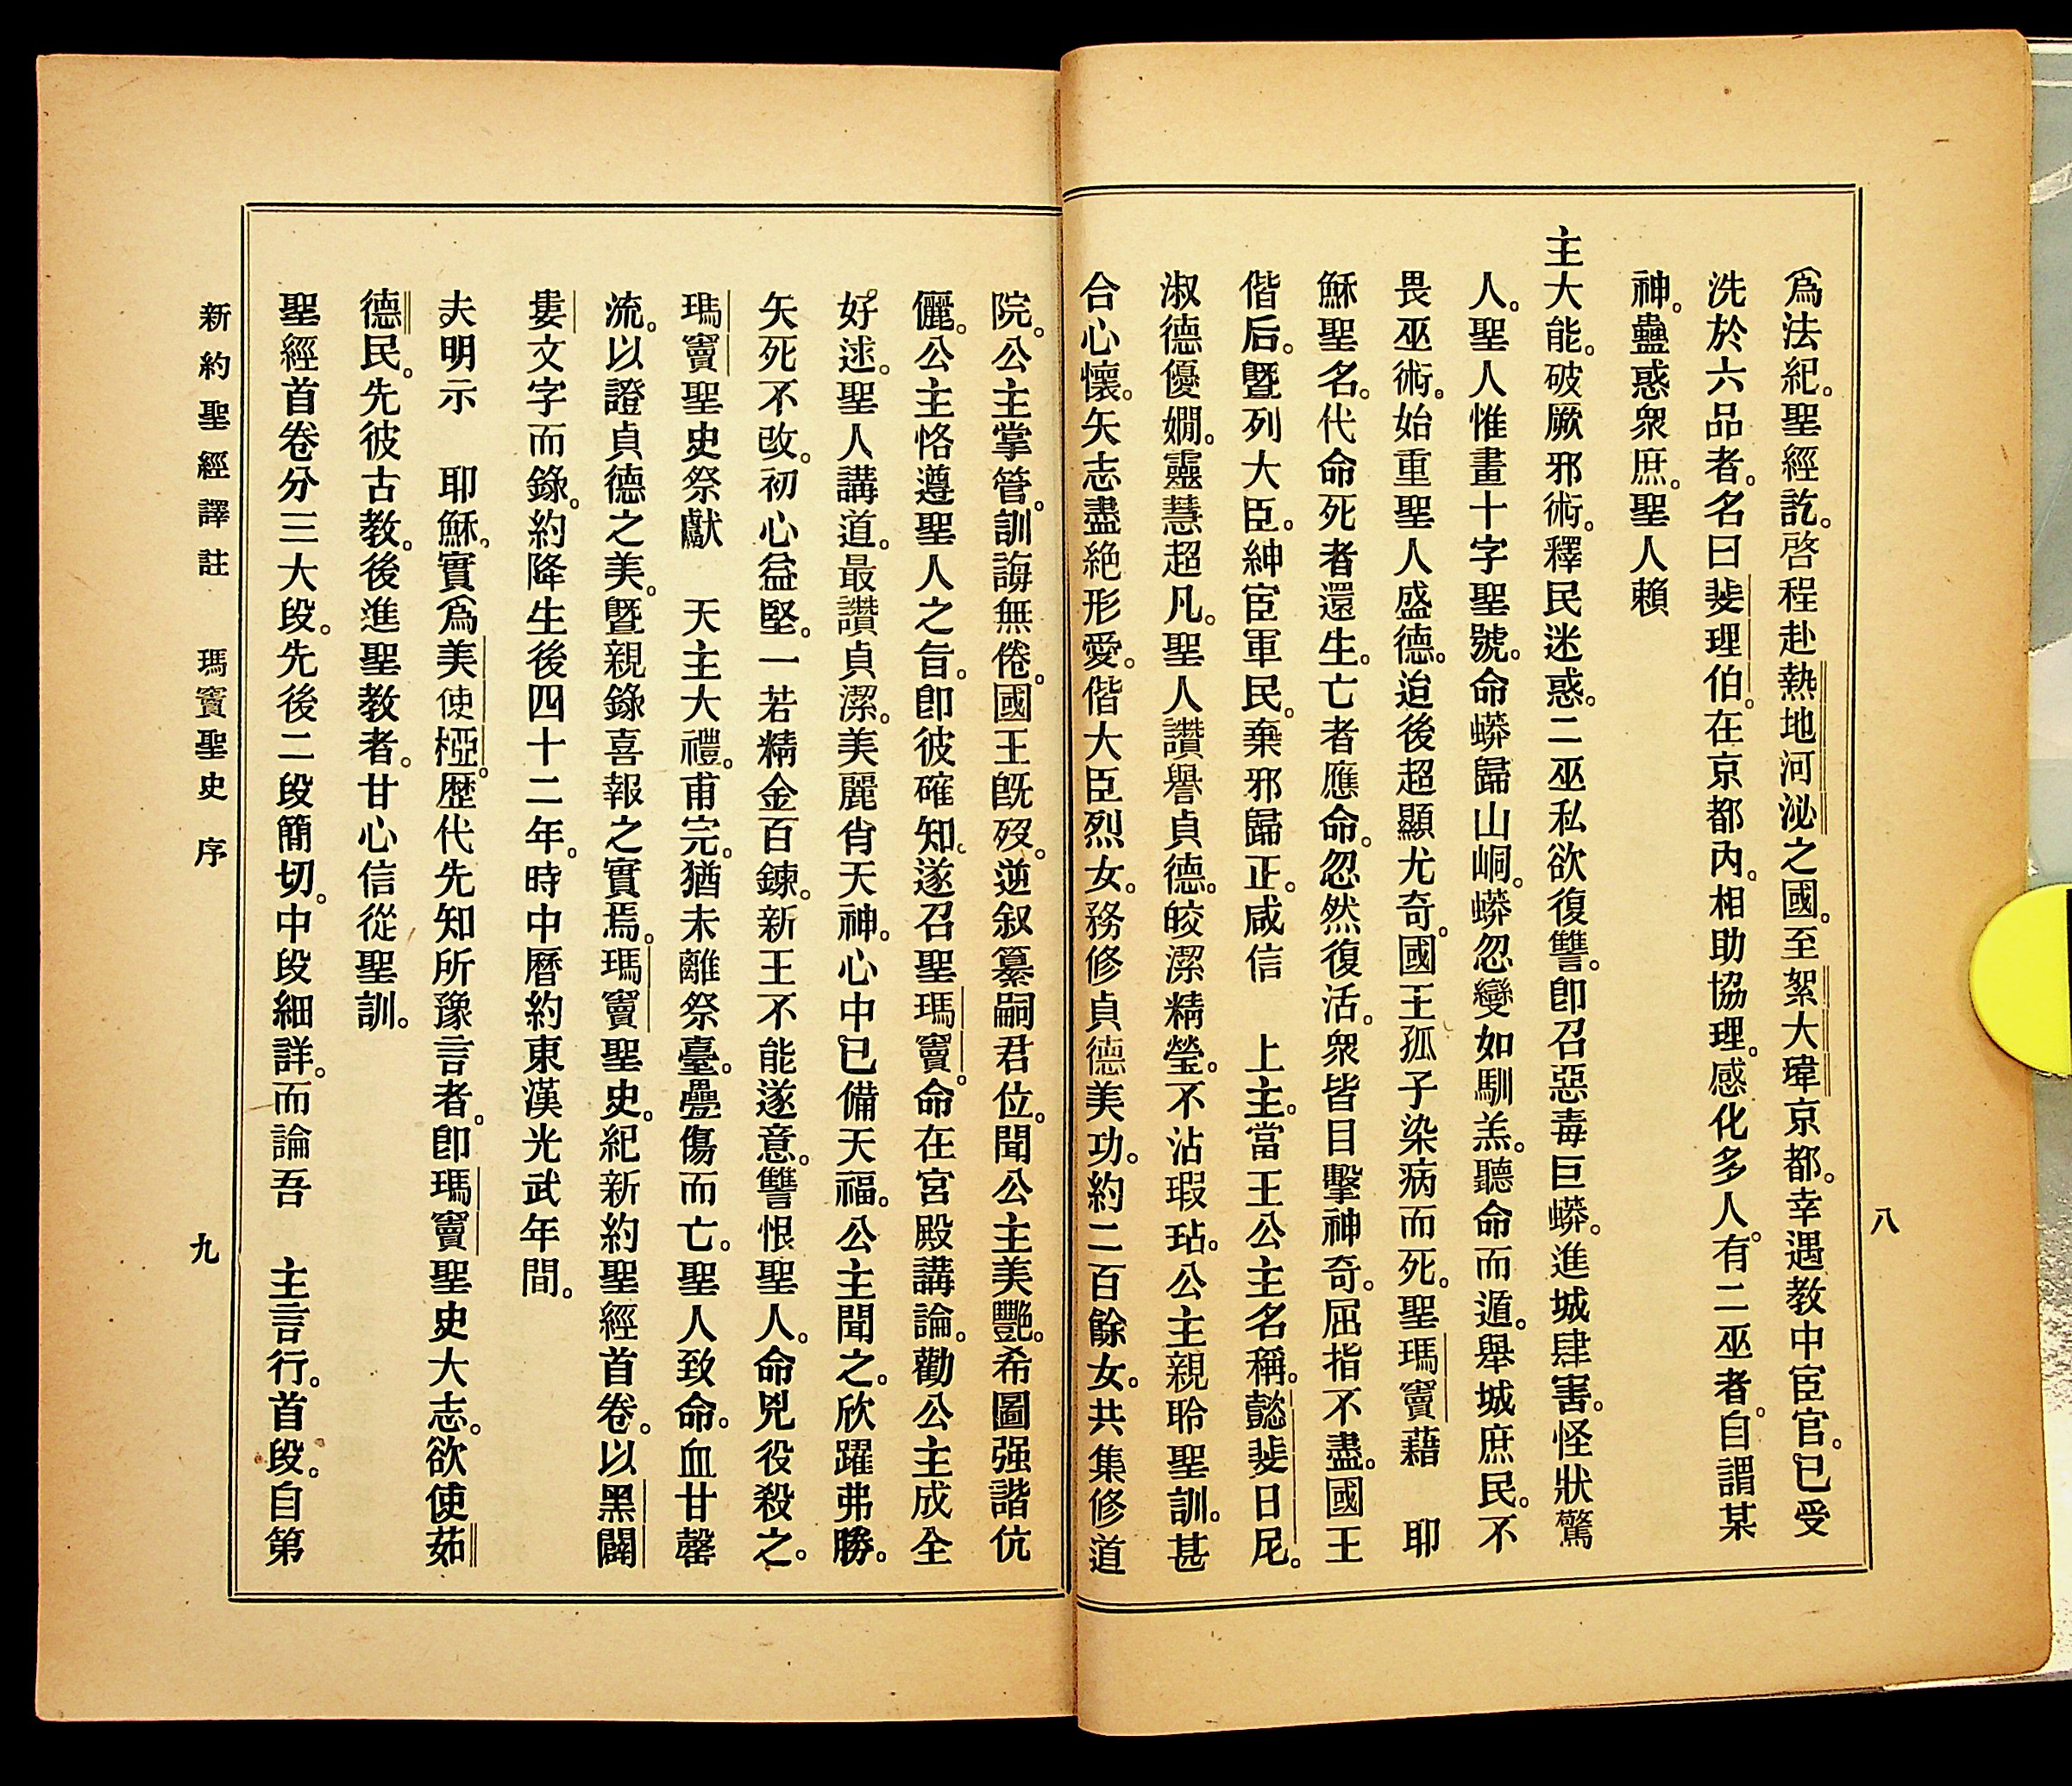 爲法紀。聖經訖。啓程赴熱地河泌之國。至絮大瑋京都。幸遇教中宦官。已受
洗於六品者。名曰斐理伯。在京都內。相助協理。感化多人。有二巫者。自謂某
神。蠱惑衆庶。聖人賴
主大能。破厥邪術。釋民迷惑。二巫私欲復讐。卽召惡毒巨蟒。進城肆害。怪狀驚
人。聖人惟畫十字聖號。命蟒歸山峒。蟒忽變如馴羔。聽命而遁。舉城庶民。不
畏巫術。始重聖人盛德。迨後超顯尤奇。國王孤子染病而死。聖瑪竇藉　耶
穌聖名。代命死者還生。亡者應命。忽然復活。衆皆目擊神奇。屈指不盡。國王
偕后。曁列大臣。紳宦軍民。棄邪歸正。咸信　上主。當王公主名稱。懿斐日尼。
淑德優嫺。靈慧超凡。聖人讚譽貞德。皎潔精瑩。不沾瑕玷。公主親聆聖訓。甚
合心懷。矢志盡絶形愛。偕大臣烈女。務修貞德美功。約二百餘女。共集修道
八
院。公主掌管。訓誨無倦。國王旣歿。逆叙纂嗣君位。聞公主美艷。希圖强諧伉
儷。公主恪遵聖人之旨。卽彼確知。遂召聖瑪竇。命在宮殿講論。勸公主成全
好逑。聖人講道。最讚貞潔。美麗肖天神。心中已備天福。公主聞之。欣躍弗勝。
矢死不改。初心益堅。一若精金百鍊。新王不能遂意。讐恨聖人。命兇役殺之。
瑪竇聖史祭獻　天主大禮。甫完。猶未離祭臺。疊傷而亡。聖人致命。血甘罄
流。以證貞德之美。曁親錄喜報之實焉。瑪竇聖史。紀新約聖經首卷。以黑闢
婁文字而錄。約降生後四十二年。時中曆約東漢光武年間。
夫明示　耶穌。實爲美使椏。歷代先知所豫言者。卽瑪竇聖史大志。欲使茹
德民。先彼古教。後進聖教者。甘心信從聖訓。
聖經首卷分三大段。先後二段簡切。中段細詳。而論吾　主言行。首段。自第
新約聖經譯註　瑪竇聖史　序
九